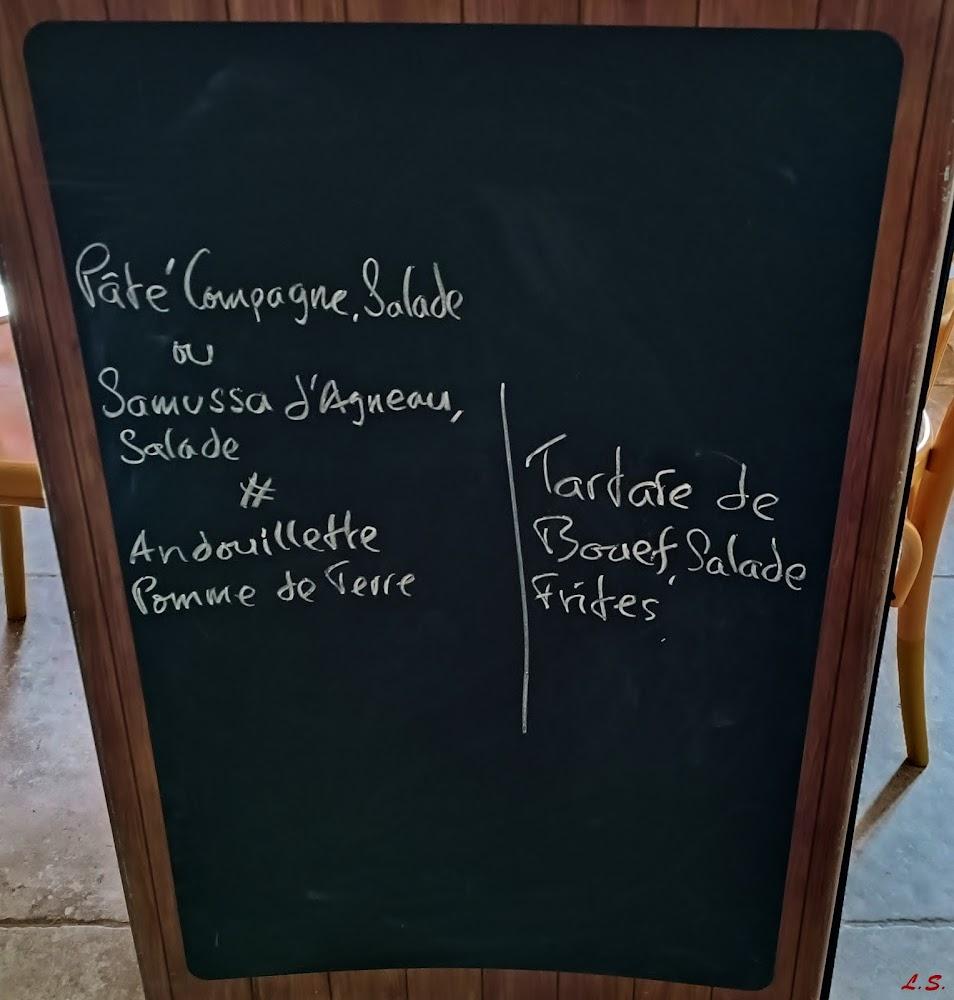 Pâté Compagne, Salade
ou
Samussa d'Agneau,
Salade
#
Andouillette
Pomme de Terre
Tartare de
Bouef, Salade
Frites
L.S.